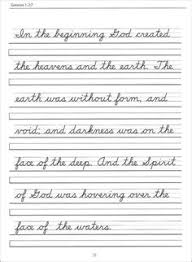 Genesis 1:1-2
In the beginning God created
the heavens and the earth. The
earth was without form, and
void; and darkness was on the
face of the deep. And the Spirit
of God was hovering over the
face of the waters.